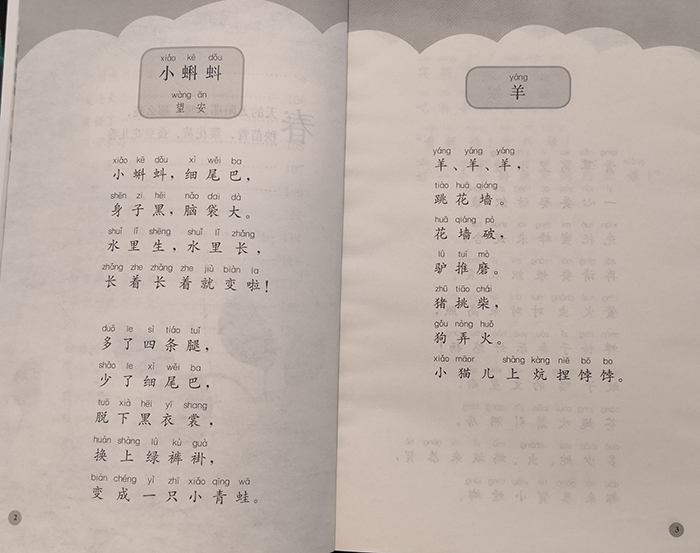 xiǎo kē dǒu
小蝌蚪
wàng ān
望安
xiǎo kē dǒu xì wěi ba
小蝌蚪，细尾巴，
shēn zi hēi nǎo dai dà
身子黑，脑袋大。
shuǐ lǐ shēng shuǐ lǐ zhǎng
水里生，水里长，
zhǎng zhe zhǎng zhe jiù biàn la
长着长着就变啦！
duō le sì tiáo tuǐ
多了四条腿，
shǎo le xì wěi ba
少了细尾巴，
tuō xià hēi yī shang
脱下黑衣裳，
huàn shàng lǜ kù guà
换上绿裤褂，
biàn chéng yì zhī xiǎo qīng wā
变成一只小青蛙。
2
yáng
羊
yáng yáng yáng
羊、羊、羊，
tiào huā qiáng
跳花墙。
huā qiáng pò
花墙破，
lǘ tuī mò
驴推磨。
zhū tiāo chái
猪挑柴，
gǒu nòng huǒ
狗弄火。
xiǎo māor shàng kàng niē bō bo
小猫儿上炕捏饽饽。
3